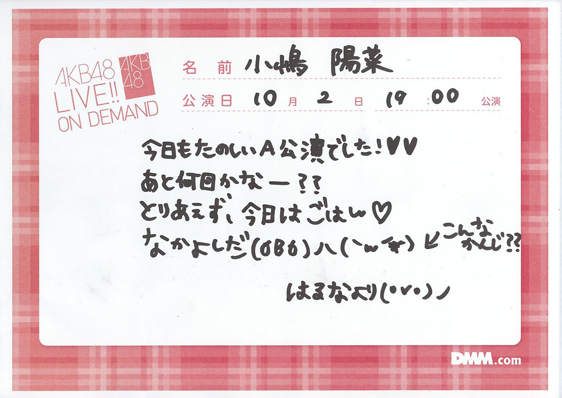 AKB48
LIVE!!
ON DEMAND
AKB
48
名前 小嶋 陽菜
公演日 10月 2日 19:00 公演
今日もたのしいA公演でした!♥♥
あと何回かなー??
とりあえず、今日はごはん♡
なかよしだ(OBO)ハ(`ω´*)↙こんな
かんじ??
はるなより(・v・)ノ
DMM.com